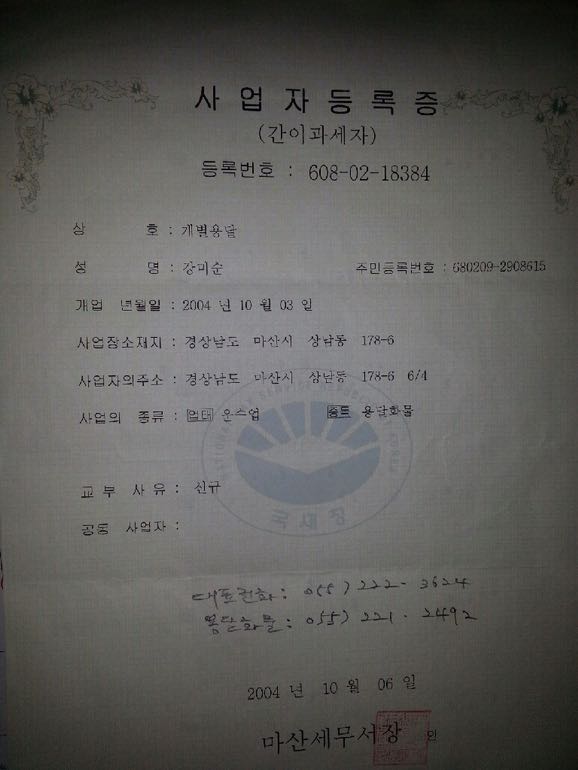 사업자등록증
(간이과세자)
등록번호 : 608-02-18384
상 호 : 개별용달
성 명 : 강미순 주민등록번호 : 680209-2908615
개업 년월일 : 2004 년 10 월 03 일
사업장소재지 : 경상남도 마산시 상남동 178-6
사업자의주소 : 경상남도 마산시 상남동 178-6 6/4
사업의 종류 : 업태 운수업 종목 용달화물
교 부 사 유 : 신규
공동 사업자 :
국세청
대표전화 : 055) 222-3624
용달화물 : 055) 221-2492
2004 년 10 월 06 일
마산세무서장 인